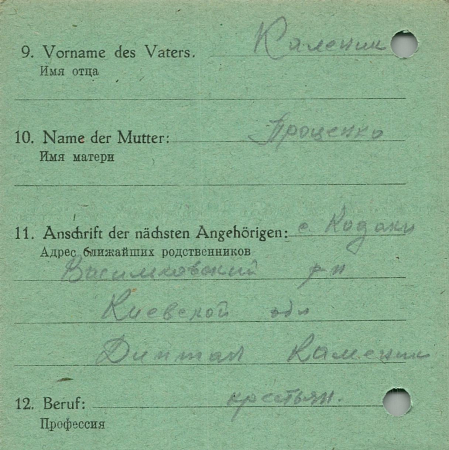 9. Vorname des Vaters. Каленик
Имя отца
10. Name der Mutter: Проценко
Имя матери
11. Anschrift der nächsten Angehörigen: с Кодаки
Адрес ближайших родственников
Василковский рн
Киевской обл
Каленик
12. Beruf: крестьян.
Профессия